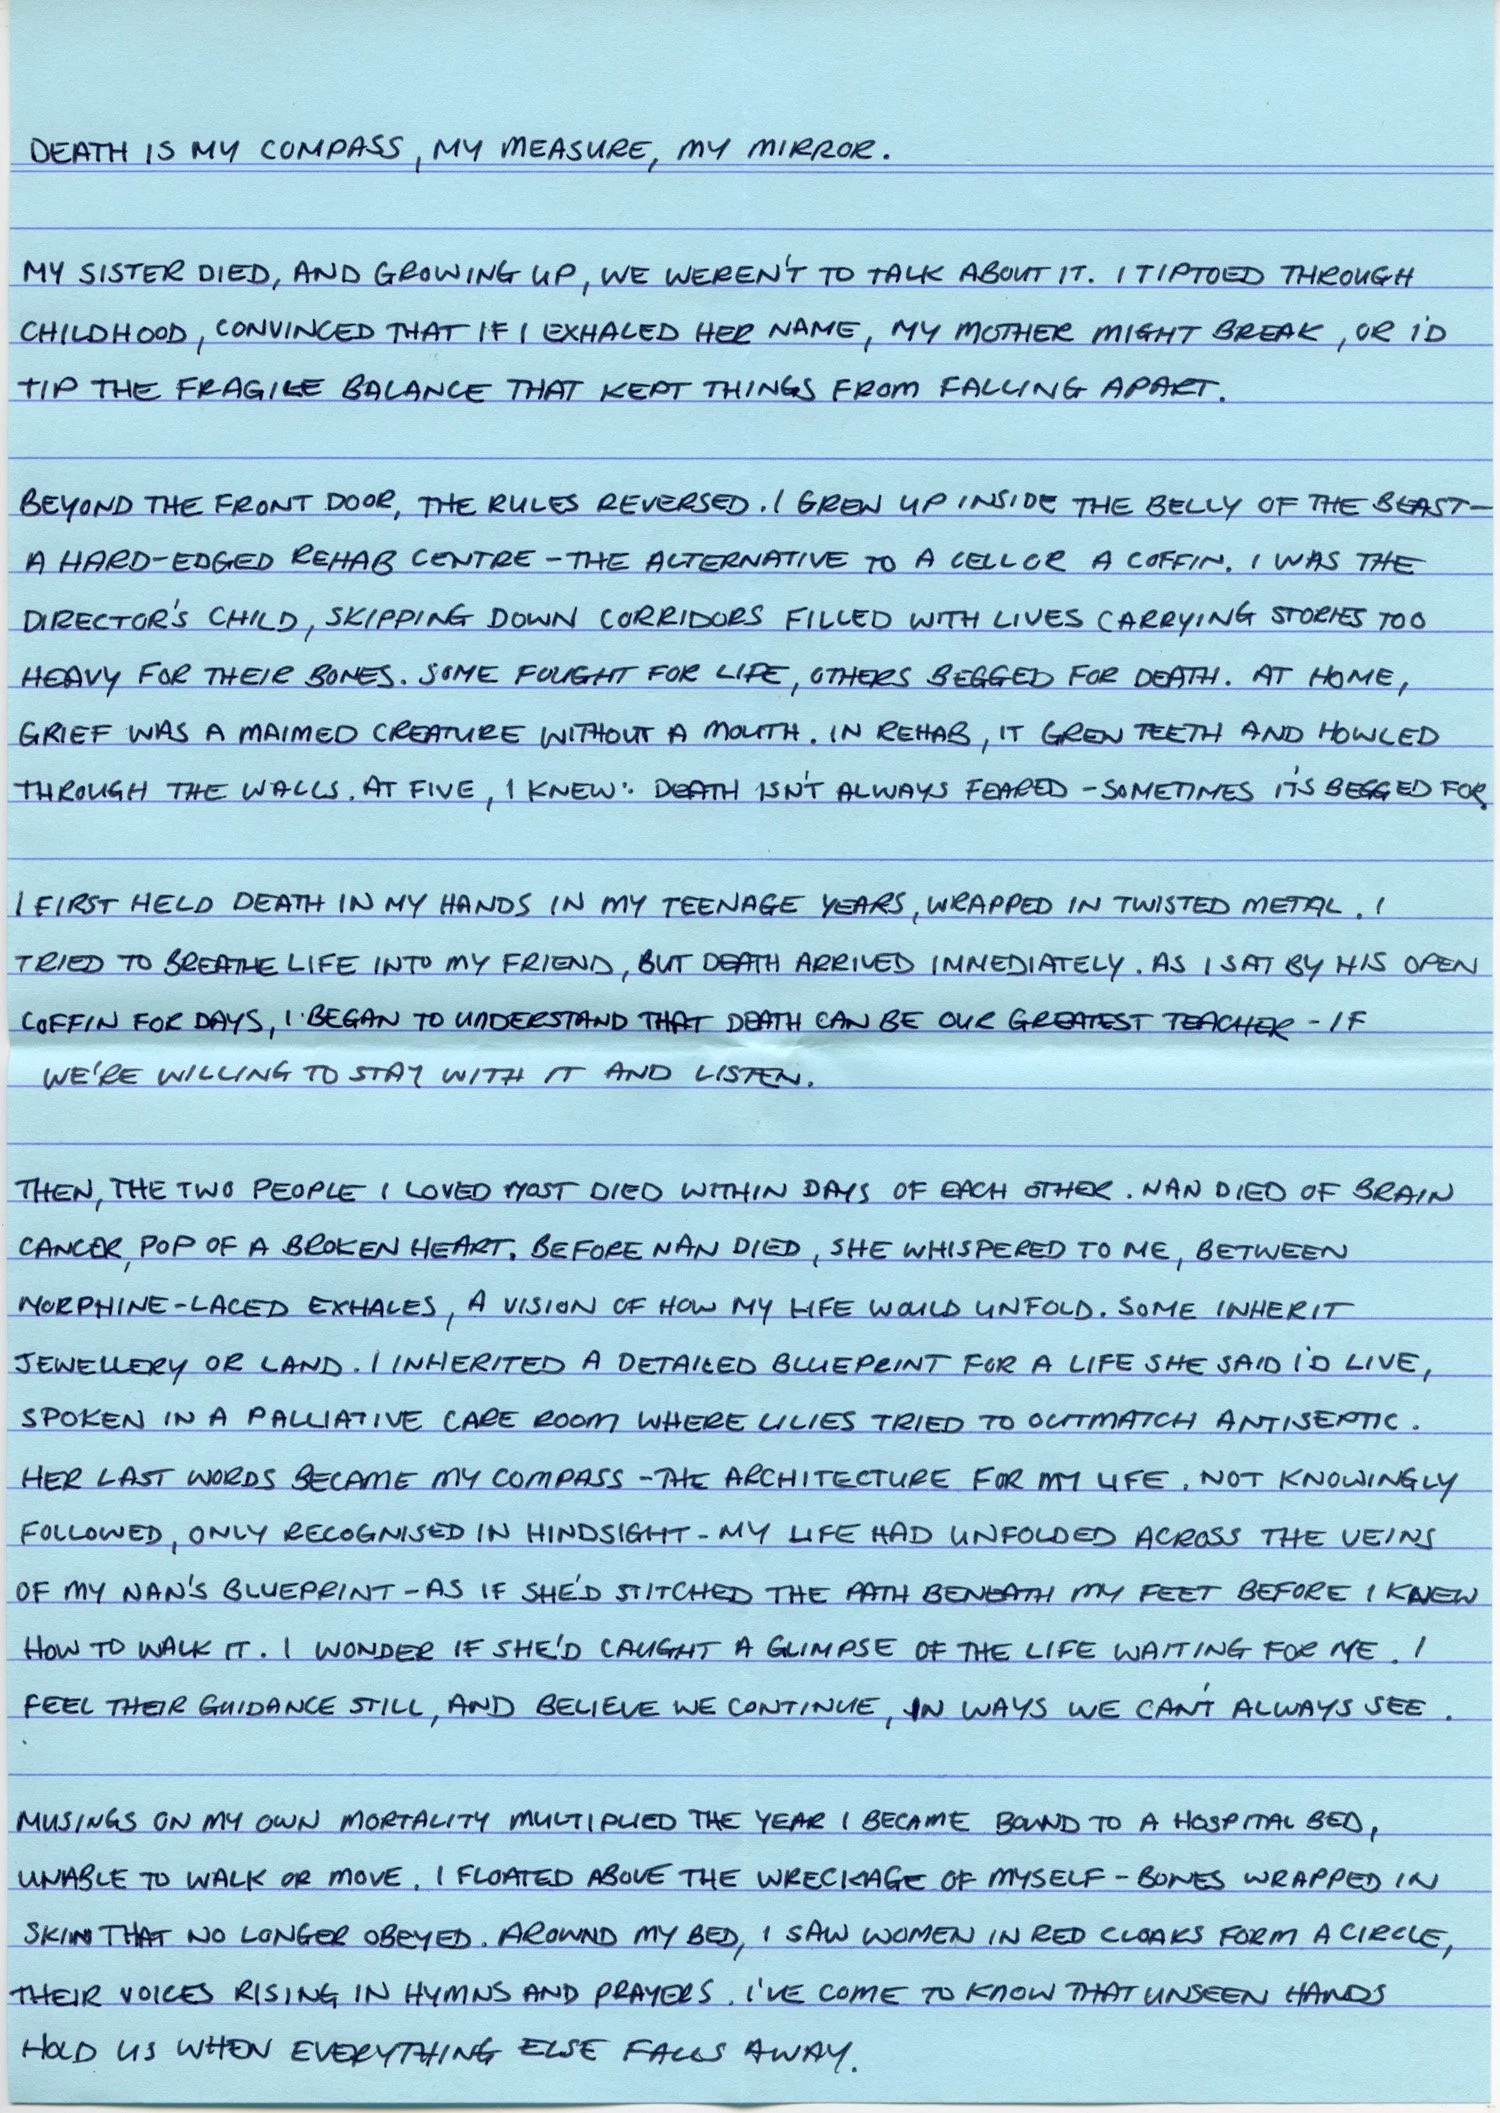 DEATH IS MY COMPASS, MY MEASURE, MY MIRROR.
MY SISTER DIED, AND GROWING UP, WE WEREN'T TO TALK ABOUT IT. I TIPTOED THROUGH
CHILDHOOD, CONVINCED THAT IF I EXHALED HER NAME, MY MOTHER MIGHT BREAK, OR I'D
TIP THE FRAGILE BALANCE THAT KEPT THINGS FROM FALLING APART.
BEYOND THE FRONT DOOR, THE RULES REVERSED. I GREW UP INSIDE THE BELLY OF THE BEAST—
A HARD-EDGED REHAB CENTRE - THE ALTERNATIVE TO A CELL OR A COFFIN. I WAS THE
DIRECTOR'S CHILD, SKIPPING DOWN CORRIDORS FILLED WITH LIVES CARRYING STORIES TOO
HEAVY FOR THEIR BONES. SOME FOUGHT FOR LIFE, OTHERS BEGGED FOR DEATH. AT HOME,
GRIEF WAS A MAIMED CREATURE WITHOUT A MOUTH. IN REHAB, IT GREW TEETH AND HOWLED
THROUGH THE WALLS. AT FIVE, I KNEW: DEATH ISN'T ALWAYS FEARED - SOMETIMES IT'S BEGGED FOR.
I FIRST HELD DEATH IN MY HANDS IN MY TEENAGE YEARS, WRAPPED IN TWISTED METAL. I
TRIED TO BREATHE LIFE INTO MY FRIEND, BUT DEATH ARRIVED IMMEDIATELY. AS I SAT BY HIS OPEN
COFFIN FOR DAYS, I BEGAN TO UNDERSTAND THAT DEATH CAN BE OUR GREATEST TEACHER - IF
WE'RE WILLING TO STAY WITH IT AND LISTEN.
THEN, THE TWO PEOPLE I LOVED MOST DIED WITHIN DAYS OF EACH OTHER. NAN DIED OF BRAIN
CANCER, POP OF A BROKEN HEART. BEFORE NAN DIED, SHE WHISPERED TO ME, BETWEEN
MORPHINE-LACED EXHALES, A VISION OF HOW MY LIFE WOULD UNFOLD. SOME INHERIT
JEWELLERY OR LAND. I INHERITED A DETAILED BLUEPRINT FOR A LIFE SHE SAID I'D LIVE,
SPOKEN IN A PALLIATIVE CARE ROOM WHERE LILIES TRIED TO OUTMATCH ANTISEPTIC.
HER LAST WORDS BECAME MY COMPASS - THE ARCHITECTURE FOR MY LIFE. NOT KNOWINGLY
FOLLOWED, ONLY RECOGNISED IN HINDSIGHT - MY LIFE HAD UNFOLDED ACROSS THE VEINS
OF MY NAN'S BLUEPRINT - AS IF SHE'D STITCHED THE PATH BENEATH MY FEET BEFORE I KNEW
HOW TO WALK IT. I WONDER IF SHE'D CAUGHT A GLIMPSE OF THE LIFE WAITING FOR ME. I
FEEL THEIR GUIDANCE STILL, AND BELIEVE WE CONTINUE, IN WAYS WE CAN'T ALWAYS SEE.
MUSINGS ON MY OWN MORTALITY MULTIPLIED THE YEAR I BECAME BOUND TO A HOSPITAL BED,
UNABLE TO WALK OR MOVE. I FLOATED ABOVE THE WRECKAGE OF MYSELF - BONES WRAPPED IN
SKIN THAT NO LONGER OBEYED. AROUND MY BED, I SAW WOMEN IN RED CLOAKS FORM A CIRCLE,
THEIR VOICES RISING IN HYMNS AND PRAYERS. I'VE COME TO KNOW THAT UNSEEN HANDS
HOLD US WHEN EVERYTHING ELSE FALLS AWAY.